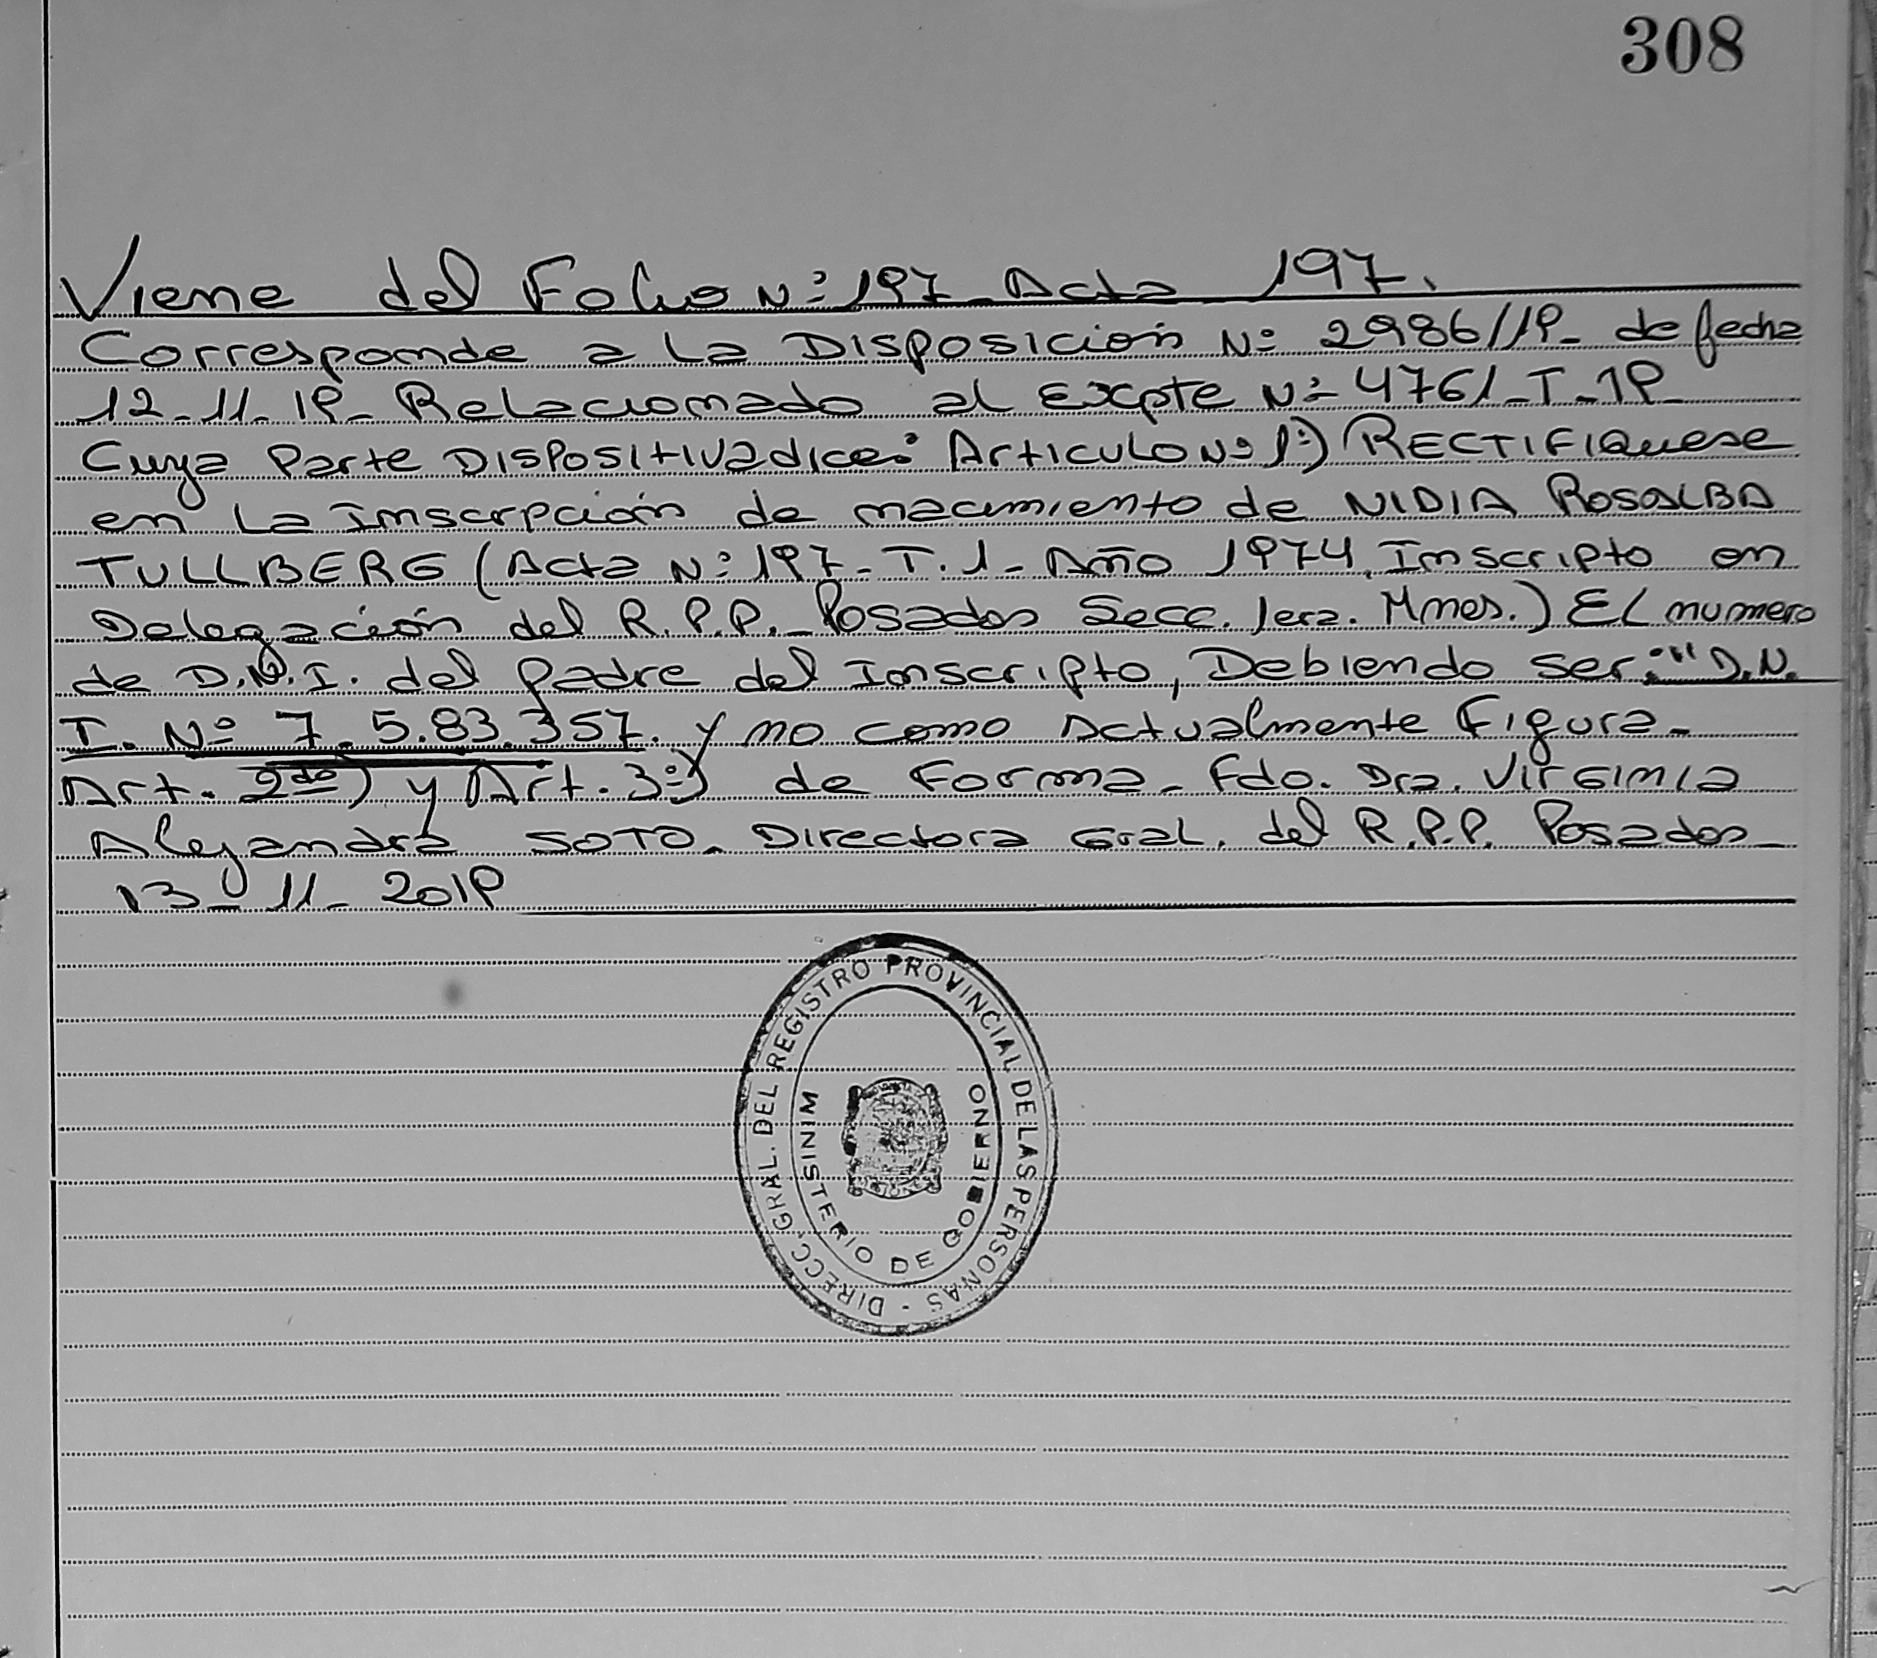 308
Viene del Folio Nº 197 - Acta 197.
Corresponde a La Disposición Nº 2986//19- de fecha
12-11-19- Relacionado al Expte Nº 4761-T-19-
Cuya Parte Dispositiva dice: Articulo Nº 1º) RECTIFIQuese
en La Inscrpción de nacimiento de NIDIA ROSALBA
TULLBERG (Acta Nº 197- T.1- Año 1974, Inscripto en
Delegación del R.P.P.- Posadas Secc. 1era. Mnes.) El numero
de D.N.I. del padre del Inscripto, Debiendo ser: "D.N.
I. Nº 7.5.83.357. y no como Actualmente Figura-
Art. 2do) y Art. 3º) de Forma- Fdo. Dra. Virginia
Alejandra SOTO. Directora Gral. del R.P.P. Posadas
13-11-2019
DIRECC. GRAL. DEL REGISTRO PROVINCIAL DE LAS PERSONAS -
MINISTERIO DE GOBIERNO